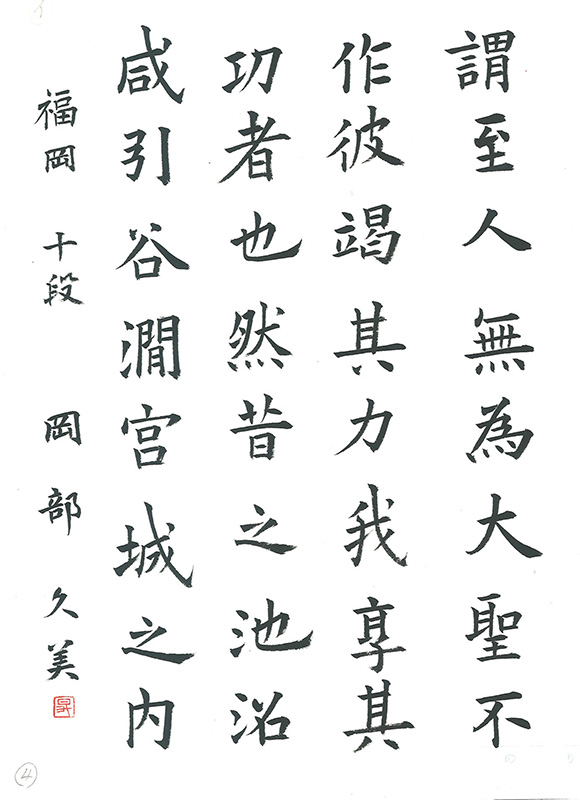 謂至人無為大聖不
作彼竭其力我享其
功者也然昔之池沼
咸引谷澗宮城之内
福岡 十段 岡部 久美
4